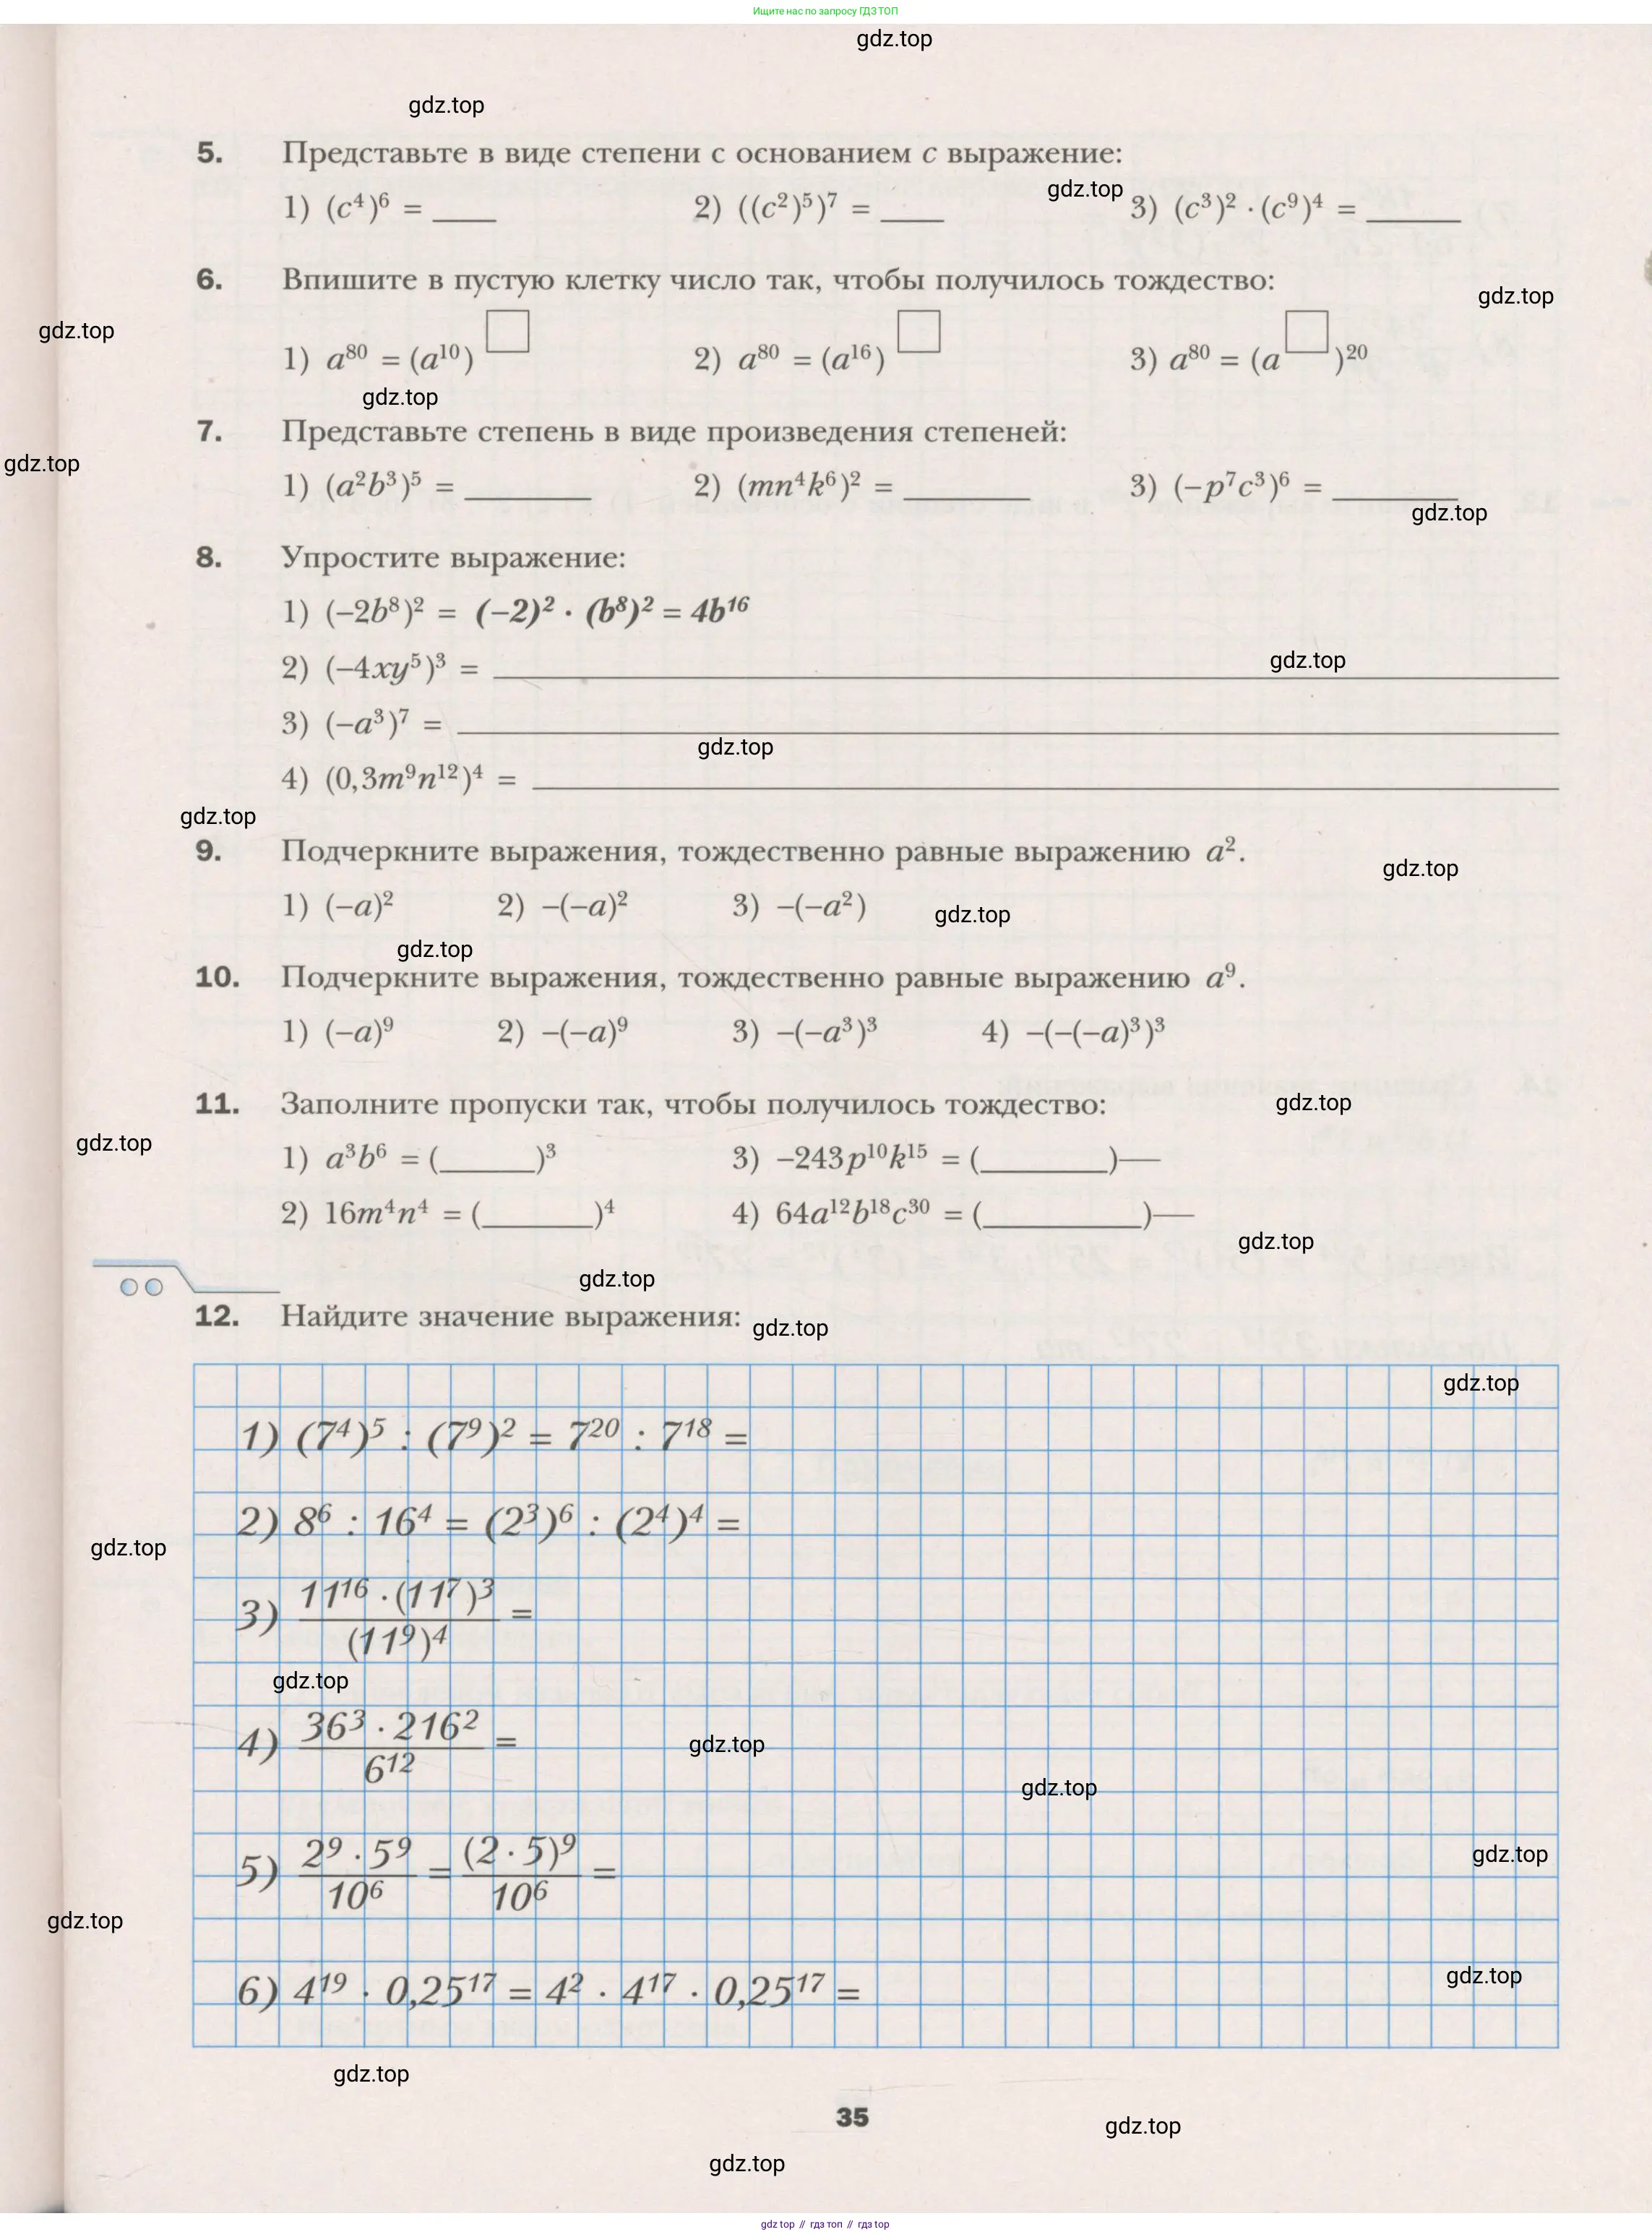 Ищите нас по запросу ГДЗ ТОП
gdz.top
gdz.top
5. Представьте в виде степени с основанием c выражение:
gdz.top
1) (c⁴)⁶ = ____ 2) ((c²)⁵)⁷ = ____ 3) (c³)² · (c⁹)⁴ = ______
6. Впишите в пустую клетку число так, чтобы получилось тождество:
gdz.top
gdz.top
1) a⁸⁰ = (a¹⁰)□ 2) a⁸⁰ = (a¹⁶)□ 3) a⁸⁰ = (a□)²⁰
gdz.top
7. Представьте степень в виде произведения степеней:
gdz.top
1) (a²b³)⁵ = ________ 2) (mn⁴k⁶)² = ________ 3) (−p⁷c³)⁶ = ________
gdz.top
8. Упростите выражение:
1) (−2b⁸)² = (−2)² · (b⁸)² = 4b¹⁶
gdz.top
2) (−4xy⁵)³ = ________
3) (−a³)⁷ = ________
gdz.top
4) (0,3m⁹n¹²)⁴ = ________
gdz.top
9. Подчеркните выражения, тождественно равные выражению a².
gdz.top
1) (−a)² 2) −(−a)² 3) −(−a²)
gdz.top
gdz.top
10. Подчеркните выражения, тождественно равные выражению a⁹.
1) (−a)⁹ 2) −(−a)⁹ 3) −(−a³)³ 4) −(−(−a)³)³
11. Заполните пропуски так, чтобы получилось тождество:
gdz.top
gdz.top
1) a³b⁶ = (______)³ 3) −243p¹⁰k¹⁵ = (________)—
2) 16m⁴n⁴ = (_______)⁴ 4) 64a¹²b¹⁸c³⁰ = (__________)—
gdz.top
gdz.top
12. Найдите значение выражения:
gdz.top
gdz.top
1) (7⁴)⁵ : (7⁹)² = 7²⁰ : 7¹⁸ =
2) 8⁶ : 16⁴ = (2³)⁶ : (2⁴)⁴ =
gdz.top
3) 11¹⁶ · (11⁷)³ / (11⁹)⁴ =
gdz.top
4) 36³ · 216² / 6¹² =
gdz.top
gdz.top
5) 2⁹ · 5⁹ / 10⁶ = (2 · 5)⁹ / 10⁶ =
gdz.top
gdz.top
6) 4¹⁹ · 0,25¹⁷ = 4² · 4¹⁷ · 0,25¹⁷ =
gdz.top
gdz.top
35
gdz.top
gdz.top
gdz.top // гдз топ // гдз top